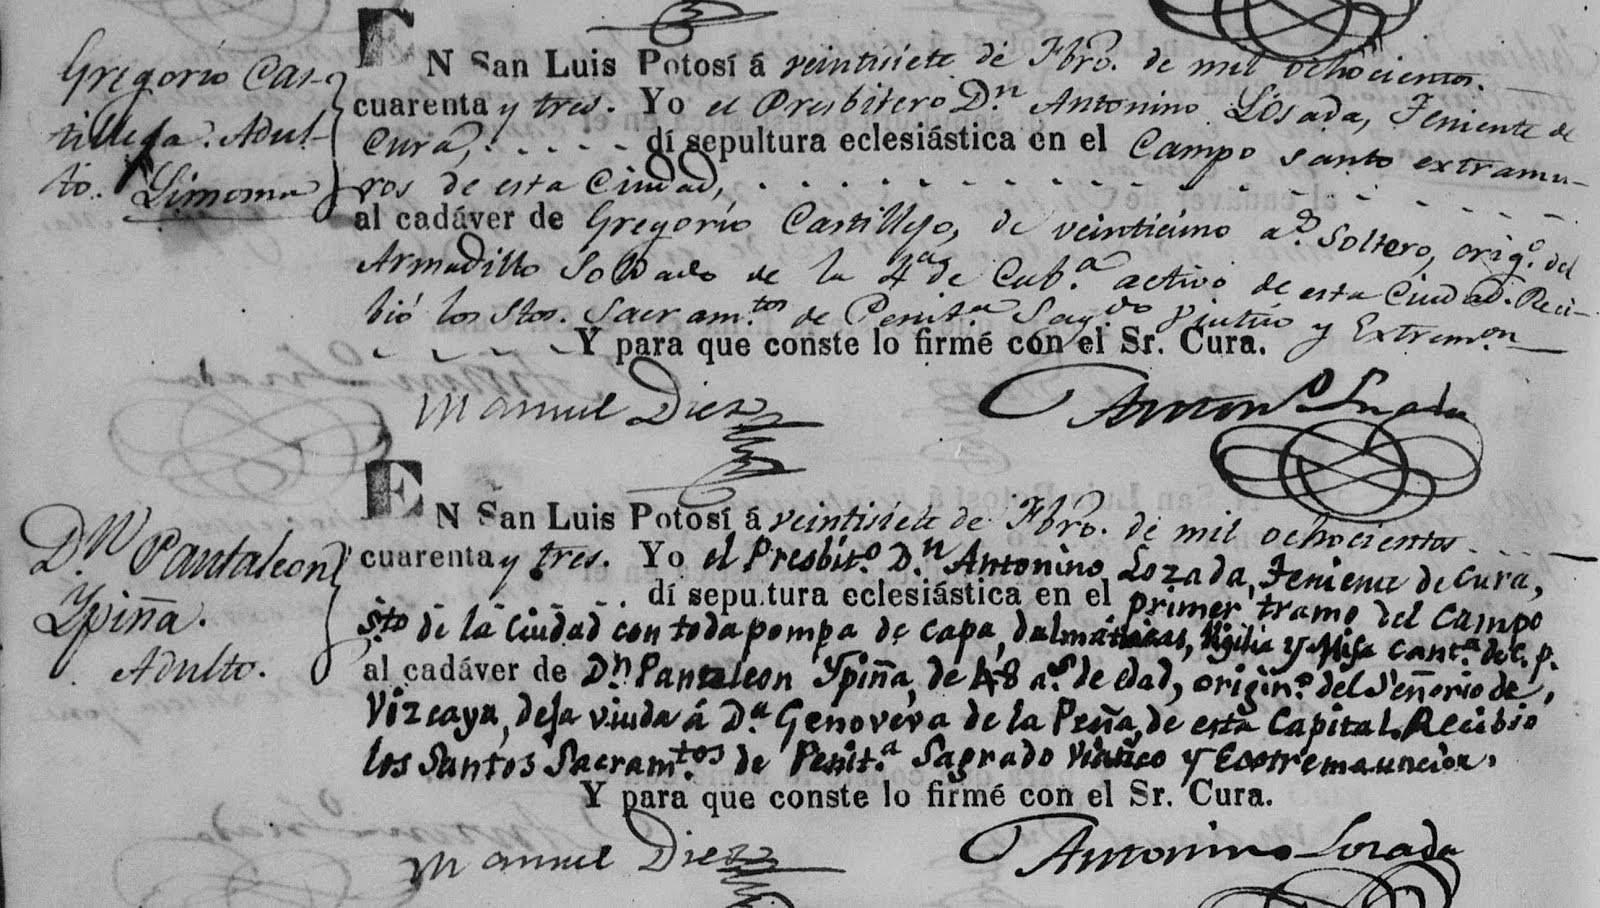 Gregorio Cas-
tillejo. Adul-
to. Limosna
EN San Luis Potosí á veintisiete de Fbro. de mil ochocientos
cuarenta y tres. Yo el Presbitero Dn Antonino Losada, Teniente de
Cura, . . . . . dí sepultura eclesiástica en el Campo santo extramu-
ros de esta Ciudad,
al cadáver de Gregorio Castillejo, de veinticinco as. Soltero, origo. del
Armadillo Soldado de la 4a de Caba. activo de esta Ciudad. Reci-
bió los Stos. Sacram.tos de Penita. Sagdo Viatico y Extremon
Y para que conste lo firmé con el Sr. Cura.
Manuel Diez
Antono Losada
Dn Pantaleon
Ypiña.
Adulto.
EN San Luis Potosí á veintisiete de Fbro. de mil ochocientos
cuarenta y tres. Yo el Presbito. Dn Antonino Lozada, Teniente de Cura,
dí sepultura eclesiástica en el primer tramo del Campo
Sto de la Ciudad con toda pompa de capa, dalmáticas, Vigilia y Misa canta. de C. p.
al cadáver de Dn Pantaleon Ypiña, de 48 as. de edad, origino. del Señorio de
Vizcaya, deja viuda á Da Genoveva de la Peña, de esta Capital. Recibio
los Santos Sacram.tos de Penita. Sagrado Viatico y Extremauncion.
Y para que conste lo firmé con el Sr. Cura.
Manuel Diez
Antonino Lozada